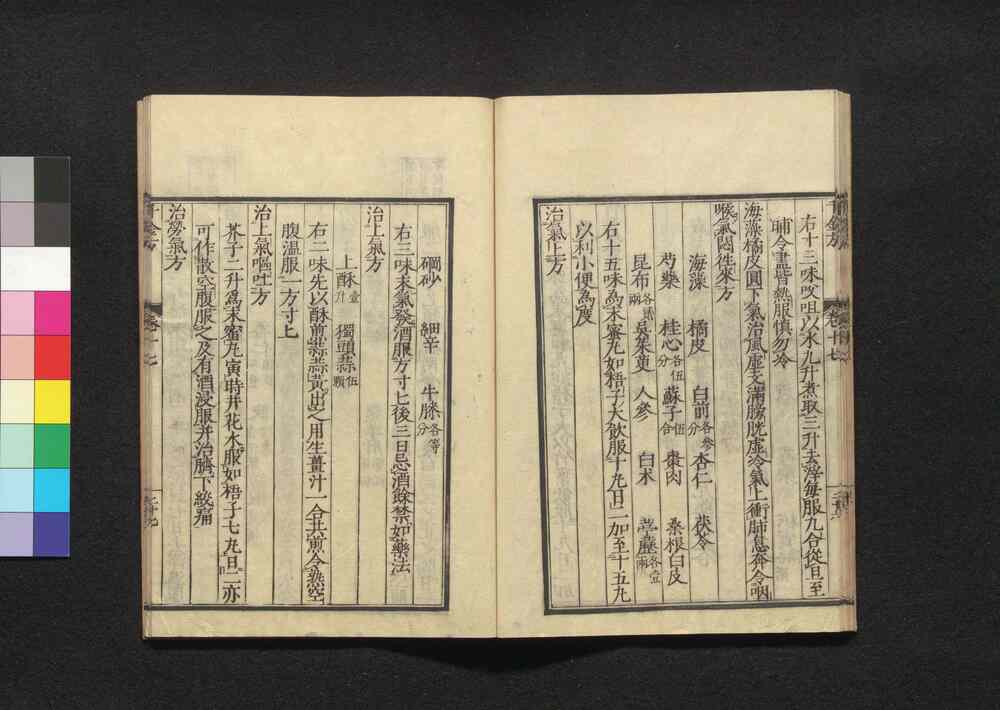 右十三味㕮咀以水九升煮取三升去滓每服九合從旦至
晡令盡皆熱服慎勿冷
海藻橘皮圓下氣治風虛支滿膀胱虛冷氣上衝肺息奔令咽
喉氣悶往來方
海藻 橘皮 白前各參分 杏仁 茯苓
芍藥 桂心各伍分 蘇子伍合 棗肉 桑根白皮
昆布各貳兩 吳茱萸 人參 白朮 葶藶各壹兩
右十五味為末蜜丸如梧子大飲服十丸日二加至十五丸
以利小便為度
治氣上方
䃃砂 細辛 牛膝各等分
右三味末氣發酒服方寸匕後三日忌酒餘禁如藥法
治上氣方
上酥壹升 獨頭蒜伍顆
右二味先以酥煎蒜蒜黃出之用生薑汁一合共煎令熟空
腹溫服一方寸匕
治上氣嘔吐方
芥子二升為末蜜丸寅時井花水服如梧子七丸日二亦
可作散空腹服之及有酒浸服并治臍下絞痛
治勞氣方
千金方 卷十七